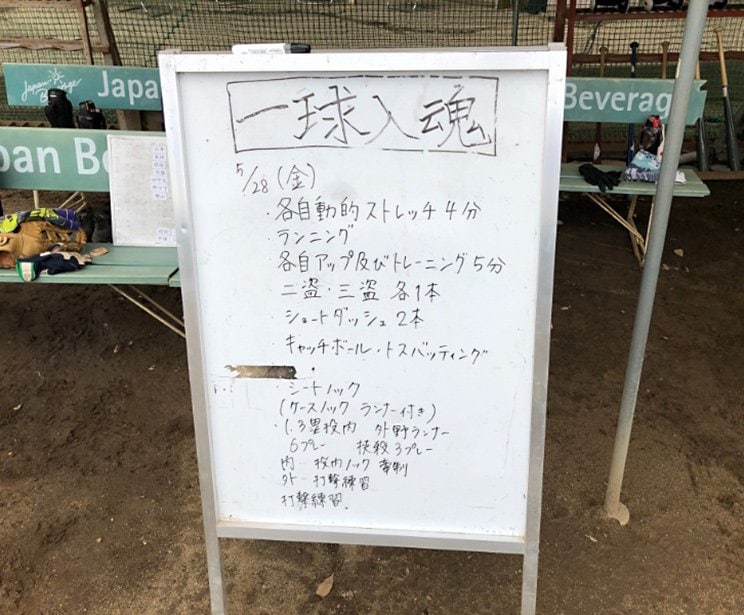 Japan Beverage
Japa
Beverag
pan Be
一球入魂
5/28(金)
・各自動的ストレッチ4分
・ランニング
・各自アップ及びトレーニング5分
・二盗・三盗 各1本
・ショートダッシュ2本
・キャッチボール・トスバッティング
・シートノック
(ケースノック ランナー付き)
・1.3塁投内 外野ランナー
6プレー 挟殺3プレー
内 投内ノック 牽制
外 打撃練習
打撃練習